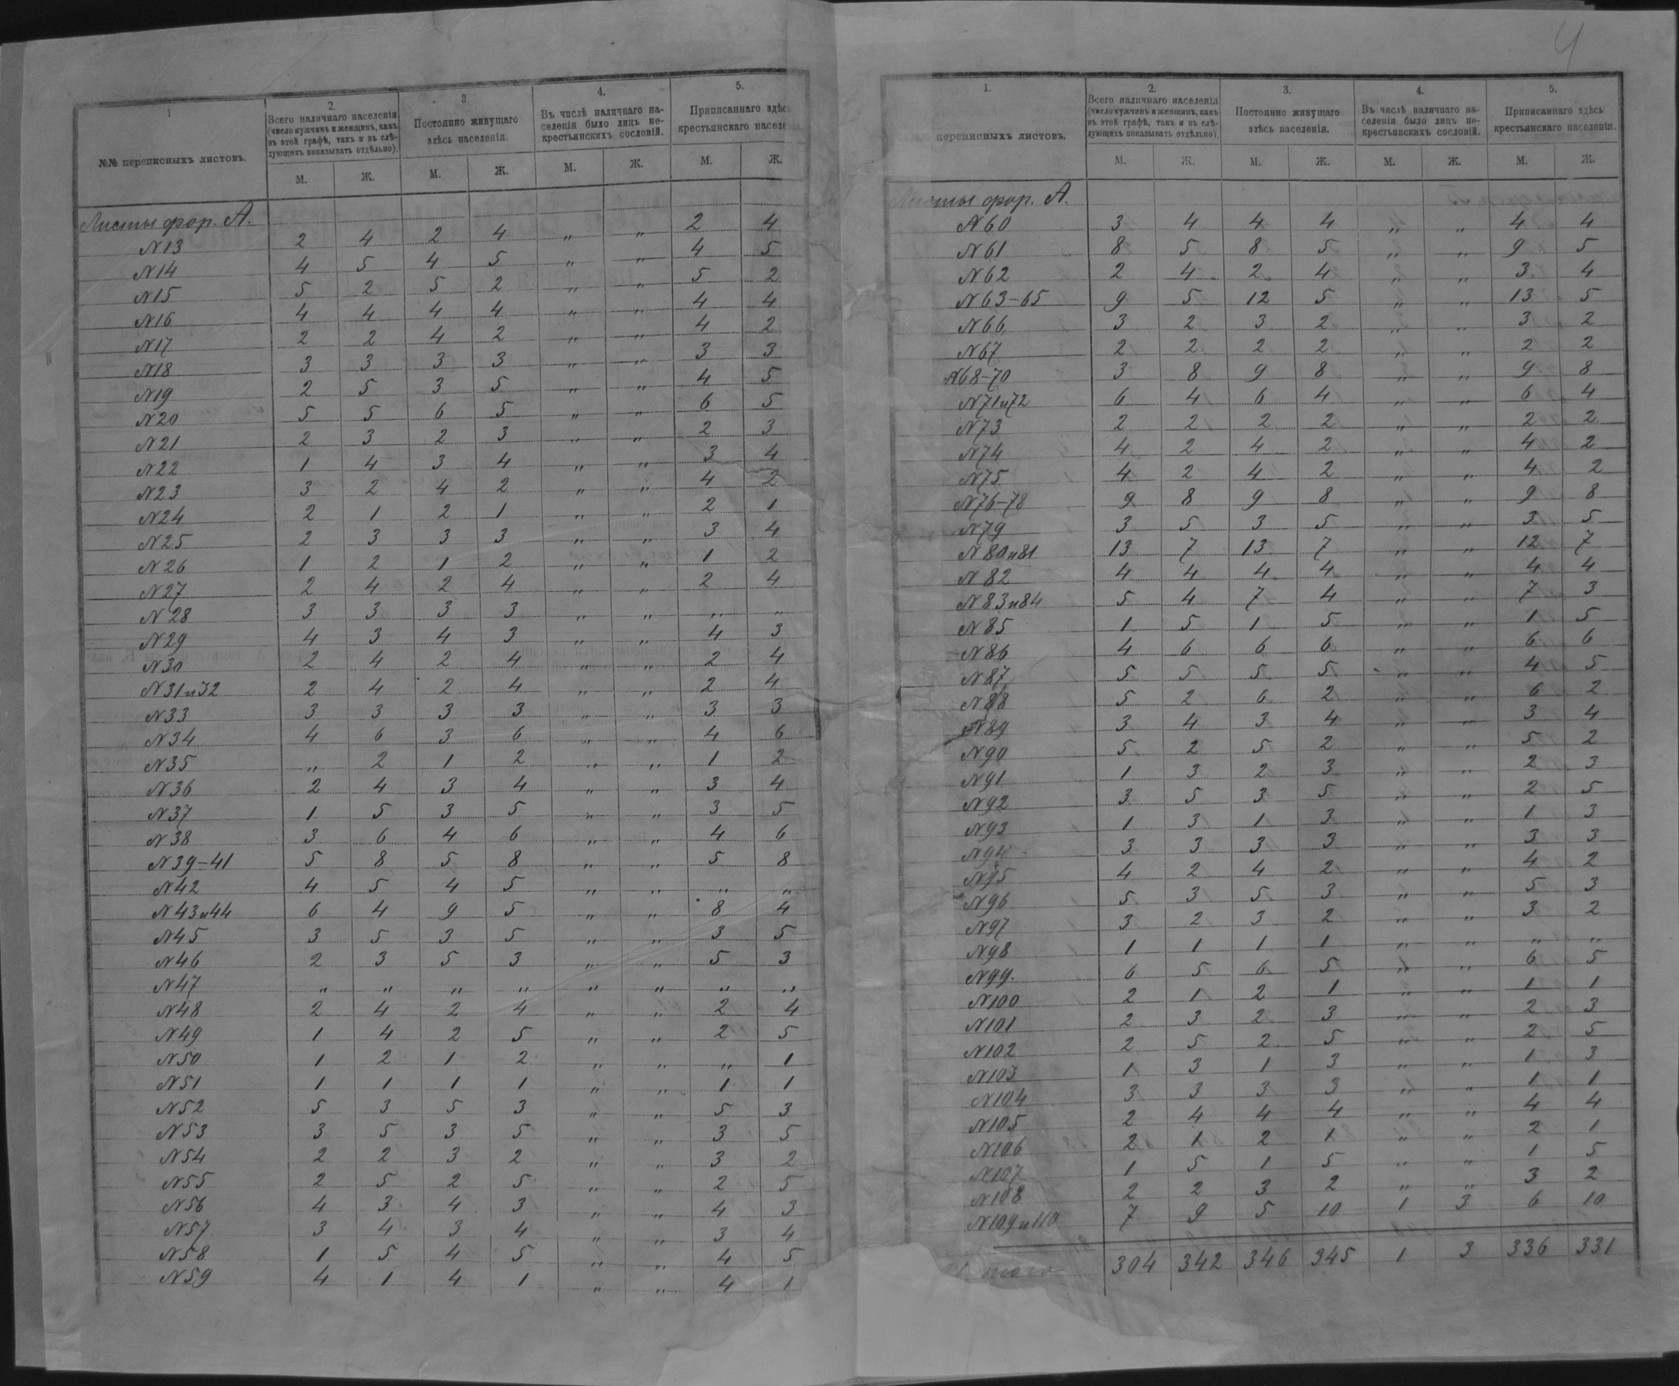 4
1
2.
Всего наличнаго населенія
(число мужчинъ и женщинъ, какъ
въ этой графѣ, такъ и въ слѣ-
дующихъ показывать отдѣльно).
3
Постоянно живущаго
здѣсь населенія.
4.
Въ числѣ наличнаго на-
селенія было лицъ не-
крестьянскихъ сословій.
5.
Приписаннаго здѣсь
крестьянскаго населе
№№ переписныхъ листовъ.
М. Ж. М. Ж. М. Ж. М. Ж.
Листы фор. А.
№13 2 4 2 4 „ „ 2 4
№14 4 5 4 5 „ „ 4 5
№15 5 2 5 2 „ „ 5 2
№16 4 4 4 4 „ „ 4 4
№17 2 2 4 2 „ „ 4 2
№18 3 3 3 3 „ „ 3 3
№19 2 5 3 5 „ „ 4 5
№20 5 5 6 5 „ „ 6 5
№21 2 3 2 3 „ „ 2 3
№22 1 4 3 4 „ „ 3 4
№23 3 2 4 2 „ „ 4 2
№24 2 1 2 1 „ „ 2 1
№25 2 3 3 3 „ „ 3 4
№26 1 2 1 2 „ „ 1 2
№27 2 4 2 4 „ „ 2 4
№28 3 3 3 3 „ „ „ „
№29 4 3 4 3 „ „ 4 3
№30 2 4 2 4 „ „ 2 4
№31и32 2 4 2 4 „ „ 2 4
№33 3 3 3 3 „ „ 3 3
№34 4 6 3 6 „ „ 4 6
№35 „ 2 1 2 „ „ 1 2
№36 2 4 3 4 „ „ 3 4
№37 1 5 3 5 „ „ 3 5
№38 3 6 4 6 „ „ 4 6
№39-41 5 8 5 8 „ „ 5 8
№42 4 5 4 5 „ „ „ „
№43и44 6 4 9 5 „ „ 8 4
№45 3 5 3 5 „ „ 3 5
№46 2 3 5 3 „ „ 5 3
№47 „ „ „ „ „ „ „ „
№48 2 4 2 4 „ „ 2 4
№49 1 4 2 5 „ „ 2 5
№50 1 2 1 2 „ „ „ 1
№51 1 1 1 1 „ „ 1 1
№52 5 3 5 3 „ „ 5 3
№53 3 5 3 5 „ „ 3 5
№54 2 2 3 2 „ „ 3 2
№55 2 5 2 5 „ „ 2 5
№56 4 3 4 3 „ „ 4 3
№57 3 4 3 4 „ „ 3 4
№58 1 5 4 5 „ „ 4 5
№59 4 1 4 1 „ „ 4 1
1.
2.
Всего наличнаго населенія
(число мужчинъ и женщинъ, какъ
въ этой графѣ, такъ и въ слѣ-
дующихъ показывать отдѣльно).
3.
Постоянно живущаго
здѣсь населенія.
4.
Въ числѣ наличнаго на-
селенія было лицъ не-
крестьянскихъ сословій.
5.
Приписаннаго здѣсь
крестьянскаго населенія.
переписныхъ листовъ.
М. Ж. М. Ж. М. Ж. М. Ж.
Листы фор. А.
№60 3 4 4 4 „ „ 4 4
№61 8 5 8 5 „ „ 9 5
№62 2 4 2 4 „ „ 3 4
№63-65 9 5 12 5 „ „ 13 5
№66 3 2 3 2 „ „ 3 2
№67 2 2 2 2 „ „ 2 2
№68-70 3 8 9 8 „ „ 9 8
№71и72 6 4 6 4 „ „ 6 4
№73 2 2 2 2 „ „ 2 2
№74 4 2 4 2 „ „ 4 2
№75 4 2 4 2 „ „ 4 2
№76-78 9 8 9 8 „ „ 9 8
№79 3 5 3 5 „ „ 3 5
№80и81 13 7 13 7 „ „ 12 7
№82 4 4 4 4 „ „ 4 4
№83и84 5 4 7 4 „ „ 7 3
№85 1 5 1 5 „ „ 1 5
№86 4 6 6 6 „ „ 6 6
№87 5 5 5 5 „ „ 4 5
№88 5 2 6 2 „ „ 6 2
№89 3 4 3 4 „ „ 3 4
№90 5 2 5 2 „ „ 5 2
№91 1 3 2 3 „ „ 2 3
№92 3 5 3 5 „ „ 2 5
№93 1 3 1 3 „ „ 1 3
№94 3 3 3 3 „ „ 3 3
№95 4 2 4 2 „ „ 4 2
№96 5 3 5 3 „ „ 5 3
№97 3 2 3 2 „ „ 3 2
№98 1 1 1 1 „ „ „ „
№99. 6 5 6 5 „ „ 6 5
№100 2 1 2 1 „ „ 1 1
№101 2 3 2 3 „ „ 2 3
№102 2 5 2 5 „ „ 2 5
№103 1 3 1 3 „ „ 1 3
№104 3 3 3 3 „ „ 1 1
№105 2 4 4 4 „ „ 4 4
№106 2 1 2 1 „ „ 2 1
№107 1 5 1 5 „ „ 1 5
№108 2 2 3 2 „ „ 3 2
№109и110 7 9 5 10 1 3 6 10
Итого 304 342 346 345 1 3 336 331